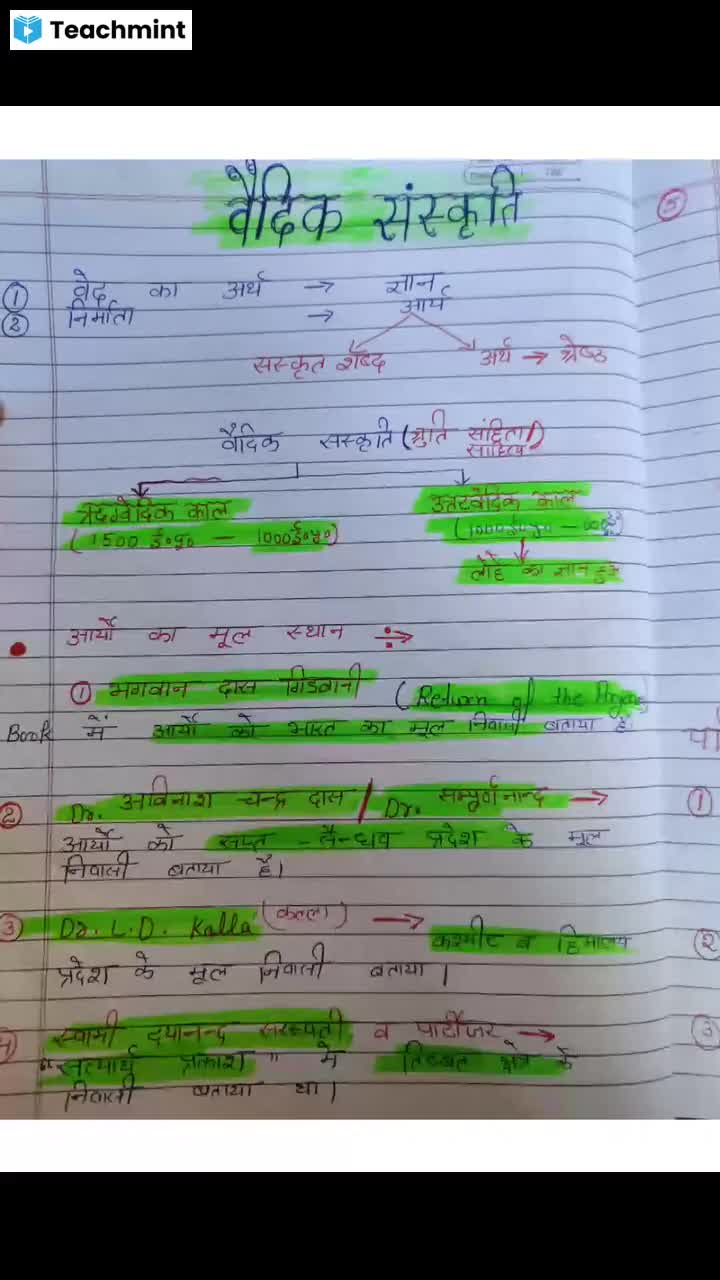 Teachmint
वैदिक संस्कृति
① वेद का अर्थ → ज्ञान
② निर्माता → आर्य
संस्कृत शब्द अर्थ → श्रेष्ठ
वैदिक संस्कृति (श्रुति संहिता/
साहित्य)
ऋग्वैदिक काल उत्तरवैदिक काल
(1500 ई॰पू॰ — 1000ई॰पू॰) (1000ई॰पू॰ - 600ई॰पू॰)
लोहे का ज्ञान हुआ
• आर्यों का मूल स्थान ÷→
① भगवान दास गिडवानी (Return of the Aryans)
Book में आर्यों को भारत का मूल निवासी बताया है।
② Dr. अविनाश चन्द्र दास / Dr. सम्पूर्णानन्द →
आर्यों को सप्त - सैन्धव प्रदेश के मूल
निवासी बताया है।
③ Dr. L.D. Kalla (कल्ला) → कश्मीर व हिमालय
प्रदेश के मूल निवासी बताया।
4 स्वामी दयानन्द सरस्वती व पार्टीजर →
"सत्यार्थ प्रकाश" में तिब्बत क्षेत्र के
निवासी बताया था।
⑤
①
②
③